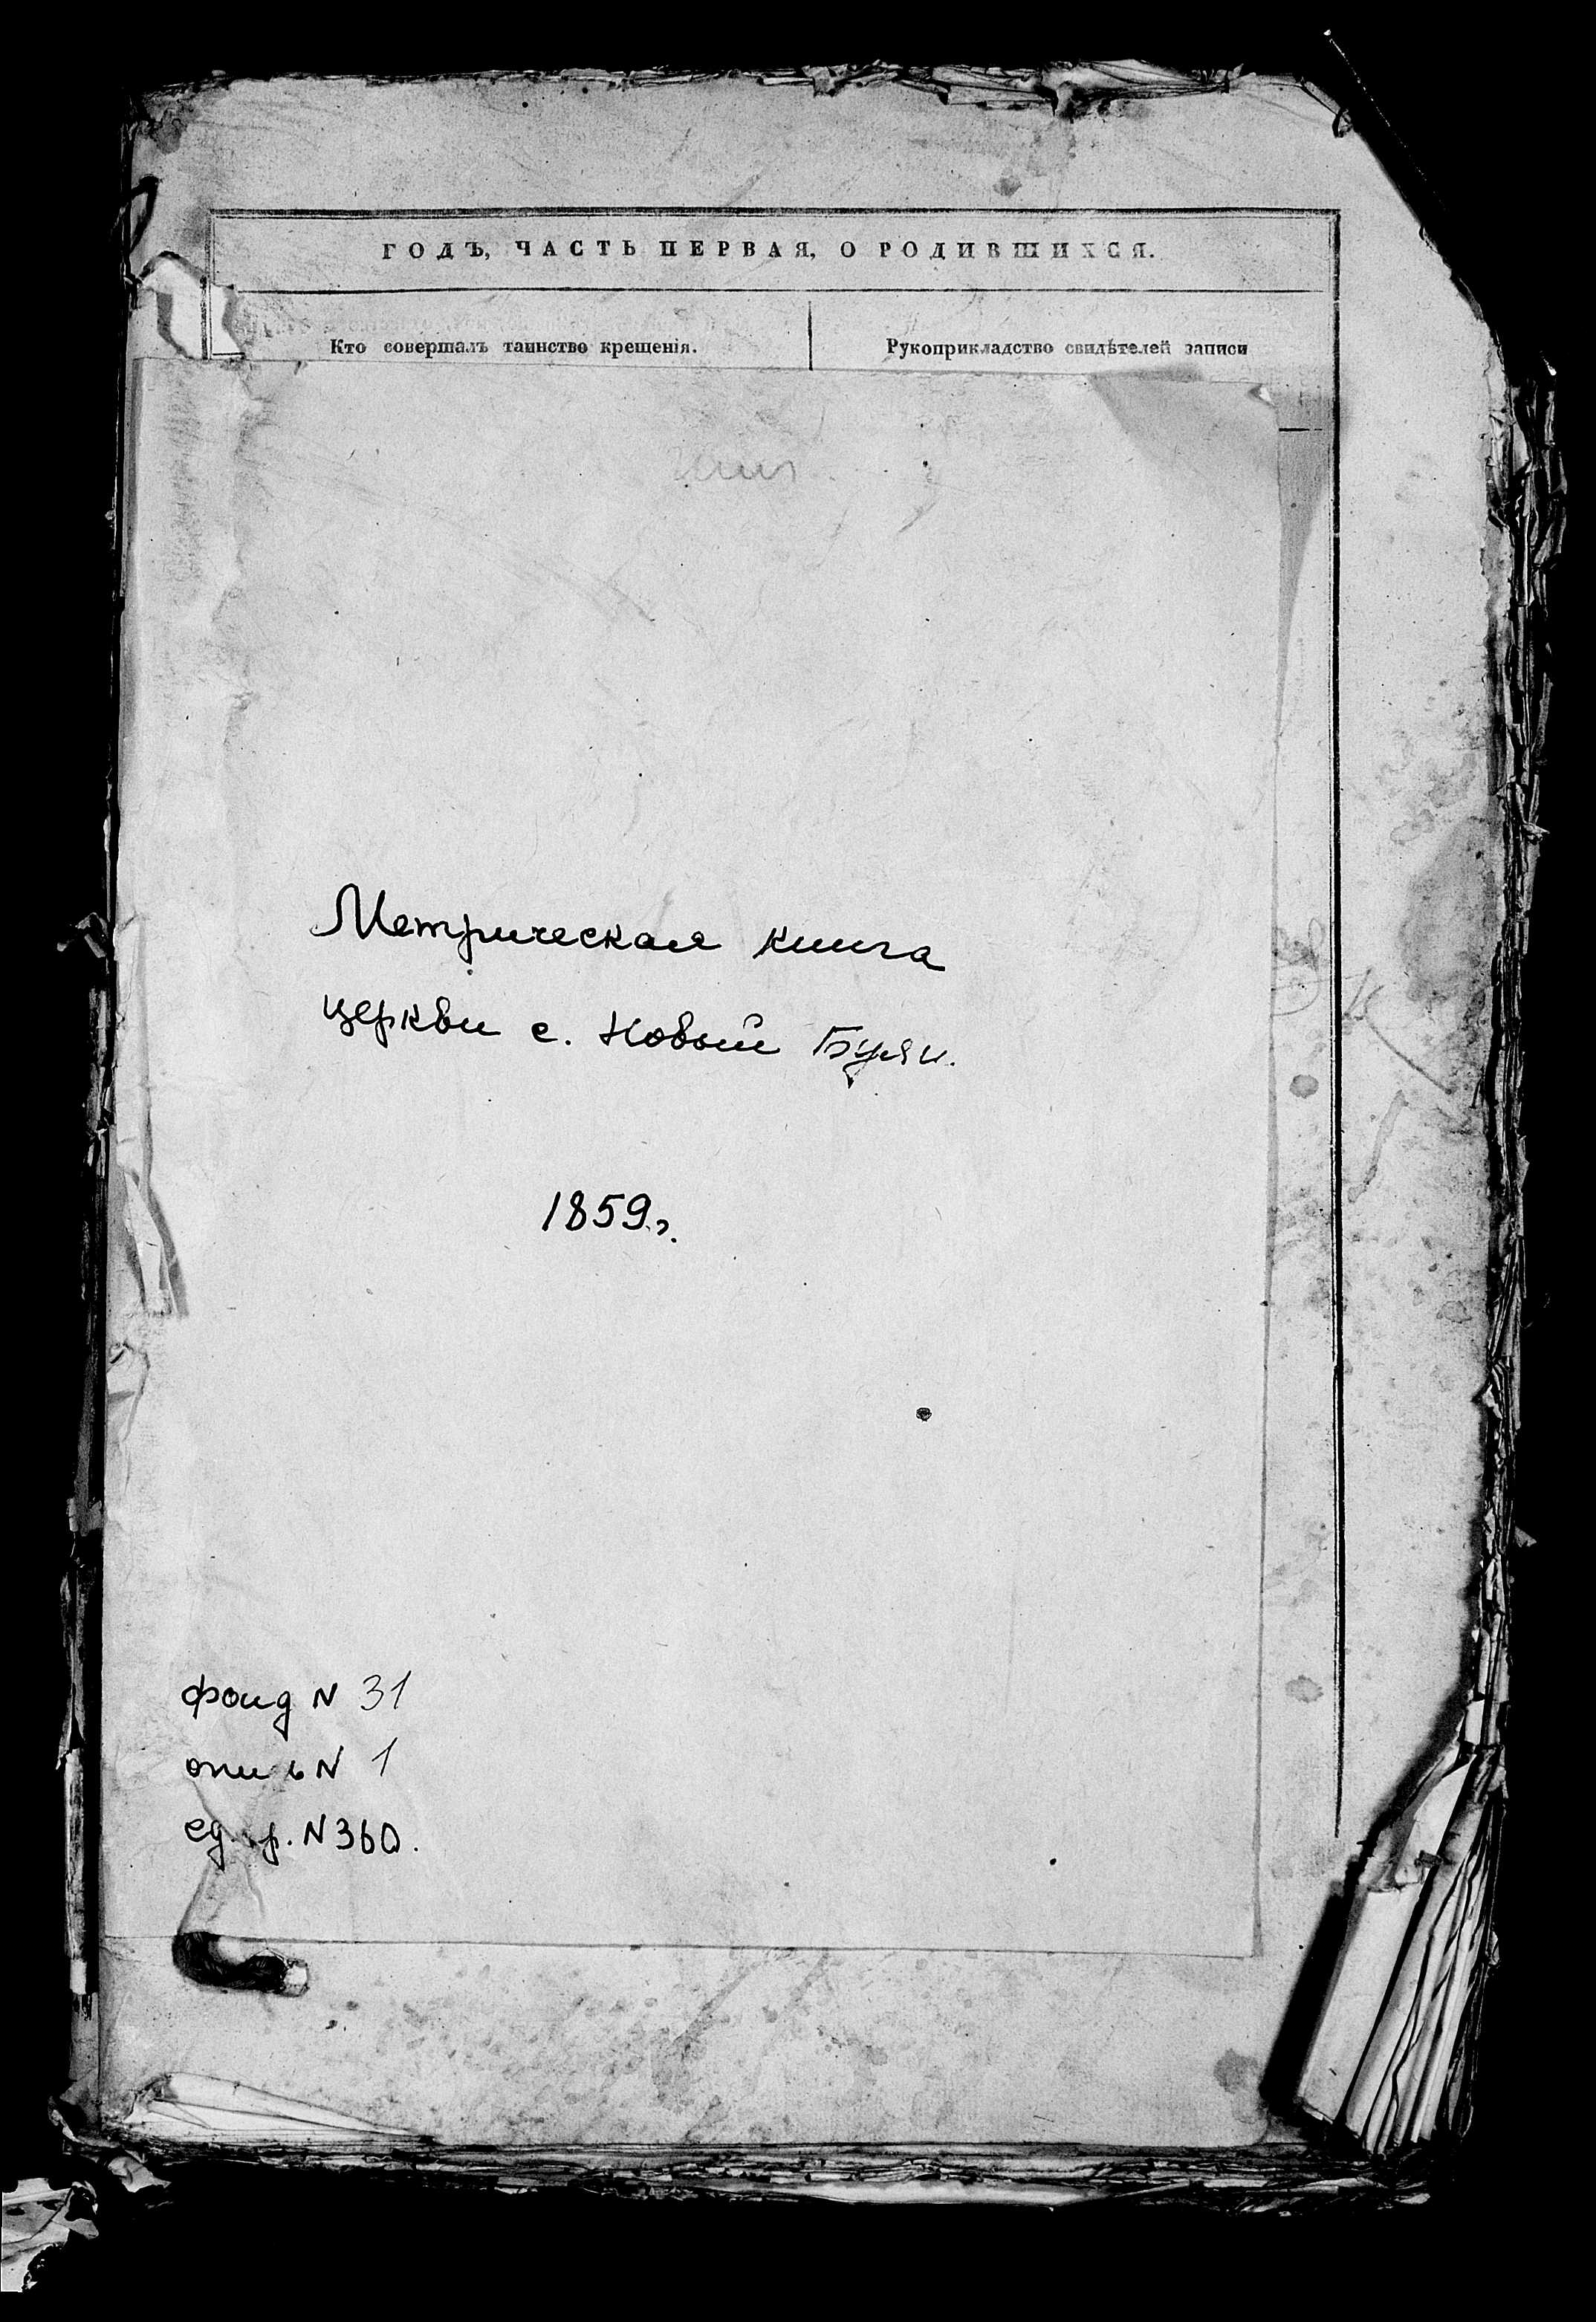 ГОДЪ, ЧАСТЬ ПЕРВАЯ, О РОДИВШИХСЯ.
Кто совершалъ таинство крещенія.
Рукоприкладство свидѣтелей записи
Метрическая книга
церкви с. Новый Буян.
1859г.
фонд N 31
опись N 1
ед. хр. N 360.